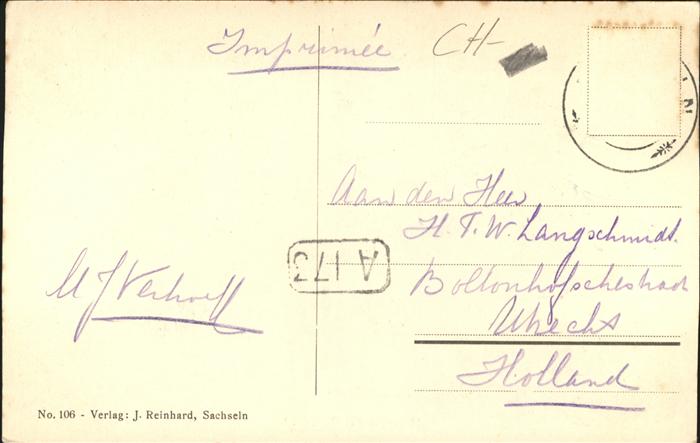 Imprimée
CH-
Aan den Heer
H. T. W. Langschmidt.
Utrecht
Holland
A 173
M J Verhoeff
No. 106 - Verlag: J. Reinhard, Sachseln